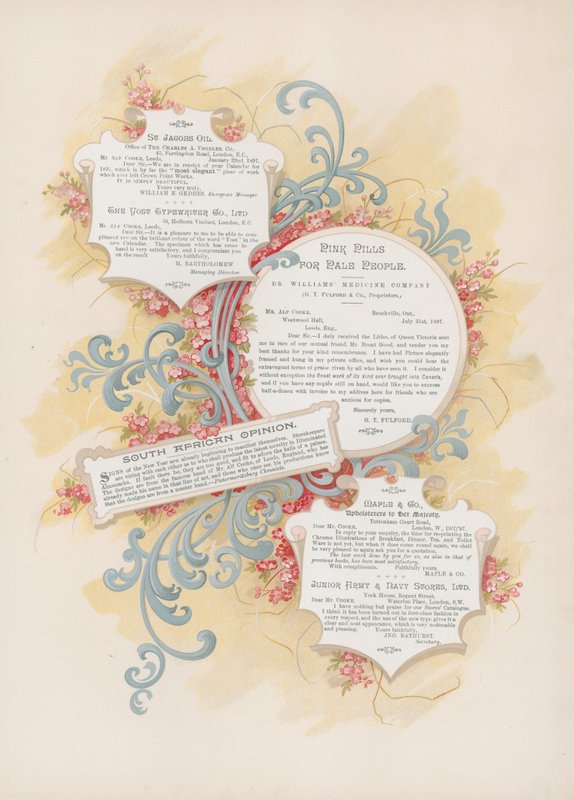 St. Jacobs Oil.
Office of The Charles A. Vogeler Co.
45, Farringdon Road, London, E.C.,
Mr Alf Cooke, Leeds, January 22nd, 1897.
Dear Sir,—We are in receipt of your Calendar for
1897, which is by far the "most elegant" piece of work
which ever left Crown Point Works.
It is simply beautiful.
Yours very truly,
WILLIAM E. GEDDES, European Manager
The Yost Typewriter Co., Ltd
50, Holborn Viaduct, London, E.C.
Mr Alf Cooke, Leeds,
Dear Sir,—It is a pleasure to me to be able to com-
pliment you on the brilliant colour of the word "Yost" in the
new Calendar. The specimen which has come to
hand is very satisfactory, and I congratulate you
on the result Yours faithfully,
M. BARTHOLOMEW
Managing Director.
Pink Pills
for Pale People.
DR. WILLIAMS' MEDICINE COMPANY
(G. T. FULFORD & CO., Proprietors,)
Mr. Alf Cooke, Brockville, Ont.,
Westwood Hall, July 31st, 1897.
Leeds, Eng.,
Dear Sir—I duly received the Litho. of Queen Victoria sent
me in care of our mutual friend, Mr. Brent Good, and tender you my
best thanks for your kind remembrance. I have had Picture elegantly
framed and hung in my private office, and wish you could hear the
extravagant terms of praise given by all who have seen it. I consider it
without exception the finest work of its kind ever brought into Canada,
and if you have any copies still on hand, would like you to express
half-a-dozen with invoice to my address here for friends who are
anxious for copies.
Sincerely yours,
G. T. FULFORD.
SOUTH AFRICAN OPINION.
SIGNS of the New Year are already beginning to manifest themselves. Storekeepers
are vieing with each other as to who shall produce the latest novelty in Illuminated
Almanacks. If fault there be, they are too good, and fit to adorn the halls of a palace.
The designs are from the famous hand of Mr Alf Cooke, of Leeds, England, who has
already made his name in that line of art, and those who once see his productions know
that the designs are from a master hand.—Pietermaritzburg Chronicle.
Maple & Co.,
Upholsterers to Her Majesty.
Tottenham Court Road,
Dear Mr. Cooke, London, W., 19/7/97.
In reply to your enquiry, the time for re-printing the
Chromo Illustrations of Breakfast, Dinner, Tea, and Toilet
Ware is not yet, but when it does come round again, we shall
be very pleased to again ask you for a quotation.
The last work done by you for us, as also in that of
previous books, has been most satisfactory.
With compliments. Faithfully yours,
MAPLE & CO.
Junior Army & Navy Stores, Ltd.
York House, Regent Street,
Dear Mr. Cooke, Waterloo Place, London, S.W.
I have nothing but praise for our Stores' Catalogue.
I think it has been turned out in first-class fashion in
every respect, and the use of the new type gives it a
clear and neat appearance, which is very noticeable
and pleasing. Yours faithfully,
JNO. BATHURST.
Secretary.